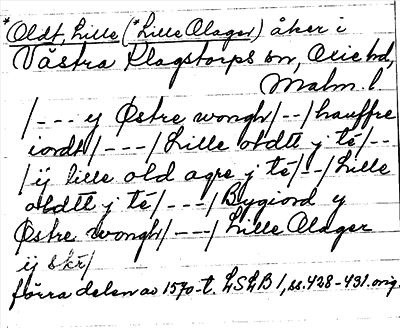 *Oldt, Lille (*Lille Olager) åker i
Västra Klagstorps sn, Oxie hd,
Malm. l.
/--- ij Østre wongh/--/hauffre
iordt/---/Lille oldtt j té/--
/ij lille old agre j té/--/Lille
oldtt j té/---/Bygiord ij
Østre wongh/---/Lille Olager
ij skt/
förra delen av 1570-t. LSLB 1, ss. 428-431. orig.